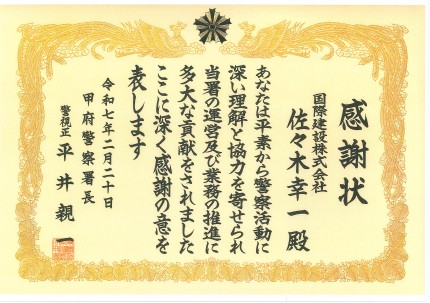 感謝状
国際建設株式会社
佐々木幸一殿
あなたは平素から警察活動に
深い理解と協力を寄せられ
当署の運営及び業務の推進に
多大な貢献をされました
ここに深く感謝の意を
表します
令和七年二月二十日
甲府警察署長
警視正 平井親一